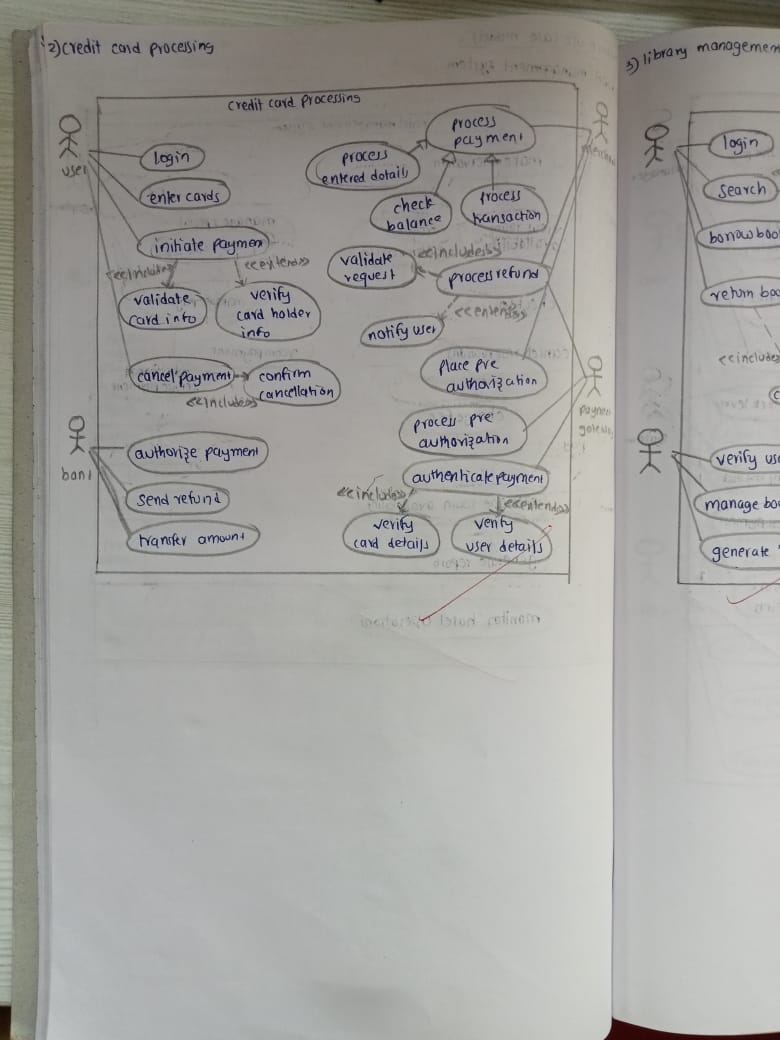 2) credit card processing
credit card processing
user
login
enter cards
initiate paymen
<<includes>>
<<extends>>
validate
card info
verify
card holder
info
cancel payment
confirm
cancellation
<<includes>>
bank
authorize payment
send refund
transfer amount
process
payment
process
entered detail
check
balance
process
transaction
validate
request
<<includes>>
process refund
<<extends>>
notify user
place pre
authorization
process pre
authorization
authenticate payment
<<includes>>
<<extends>>
verify
card details
verify
user details
3) library managemen
login
search
borrow boo
return boo
<<includes
verify use
manage bo
generate